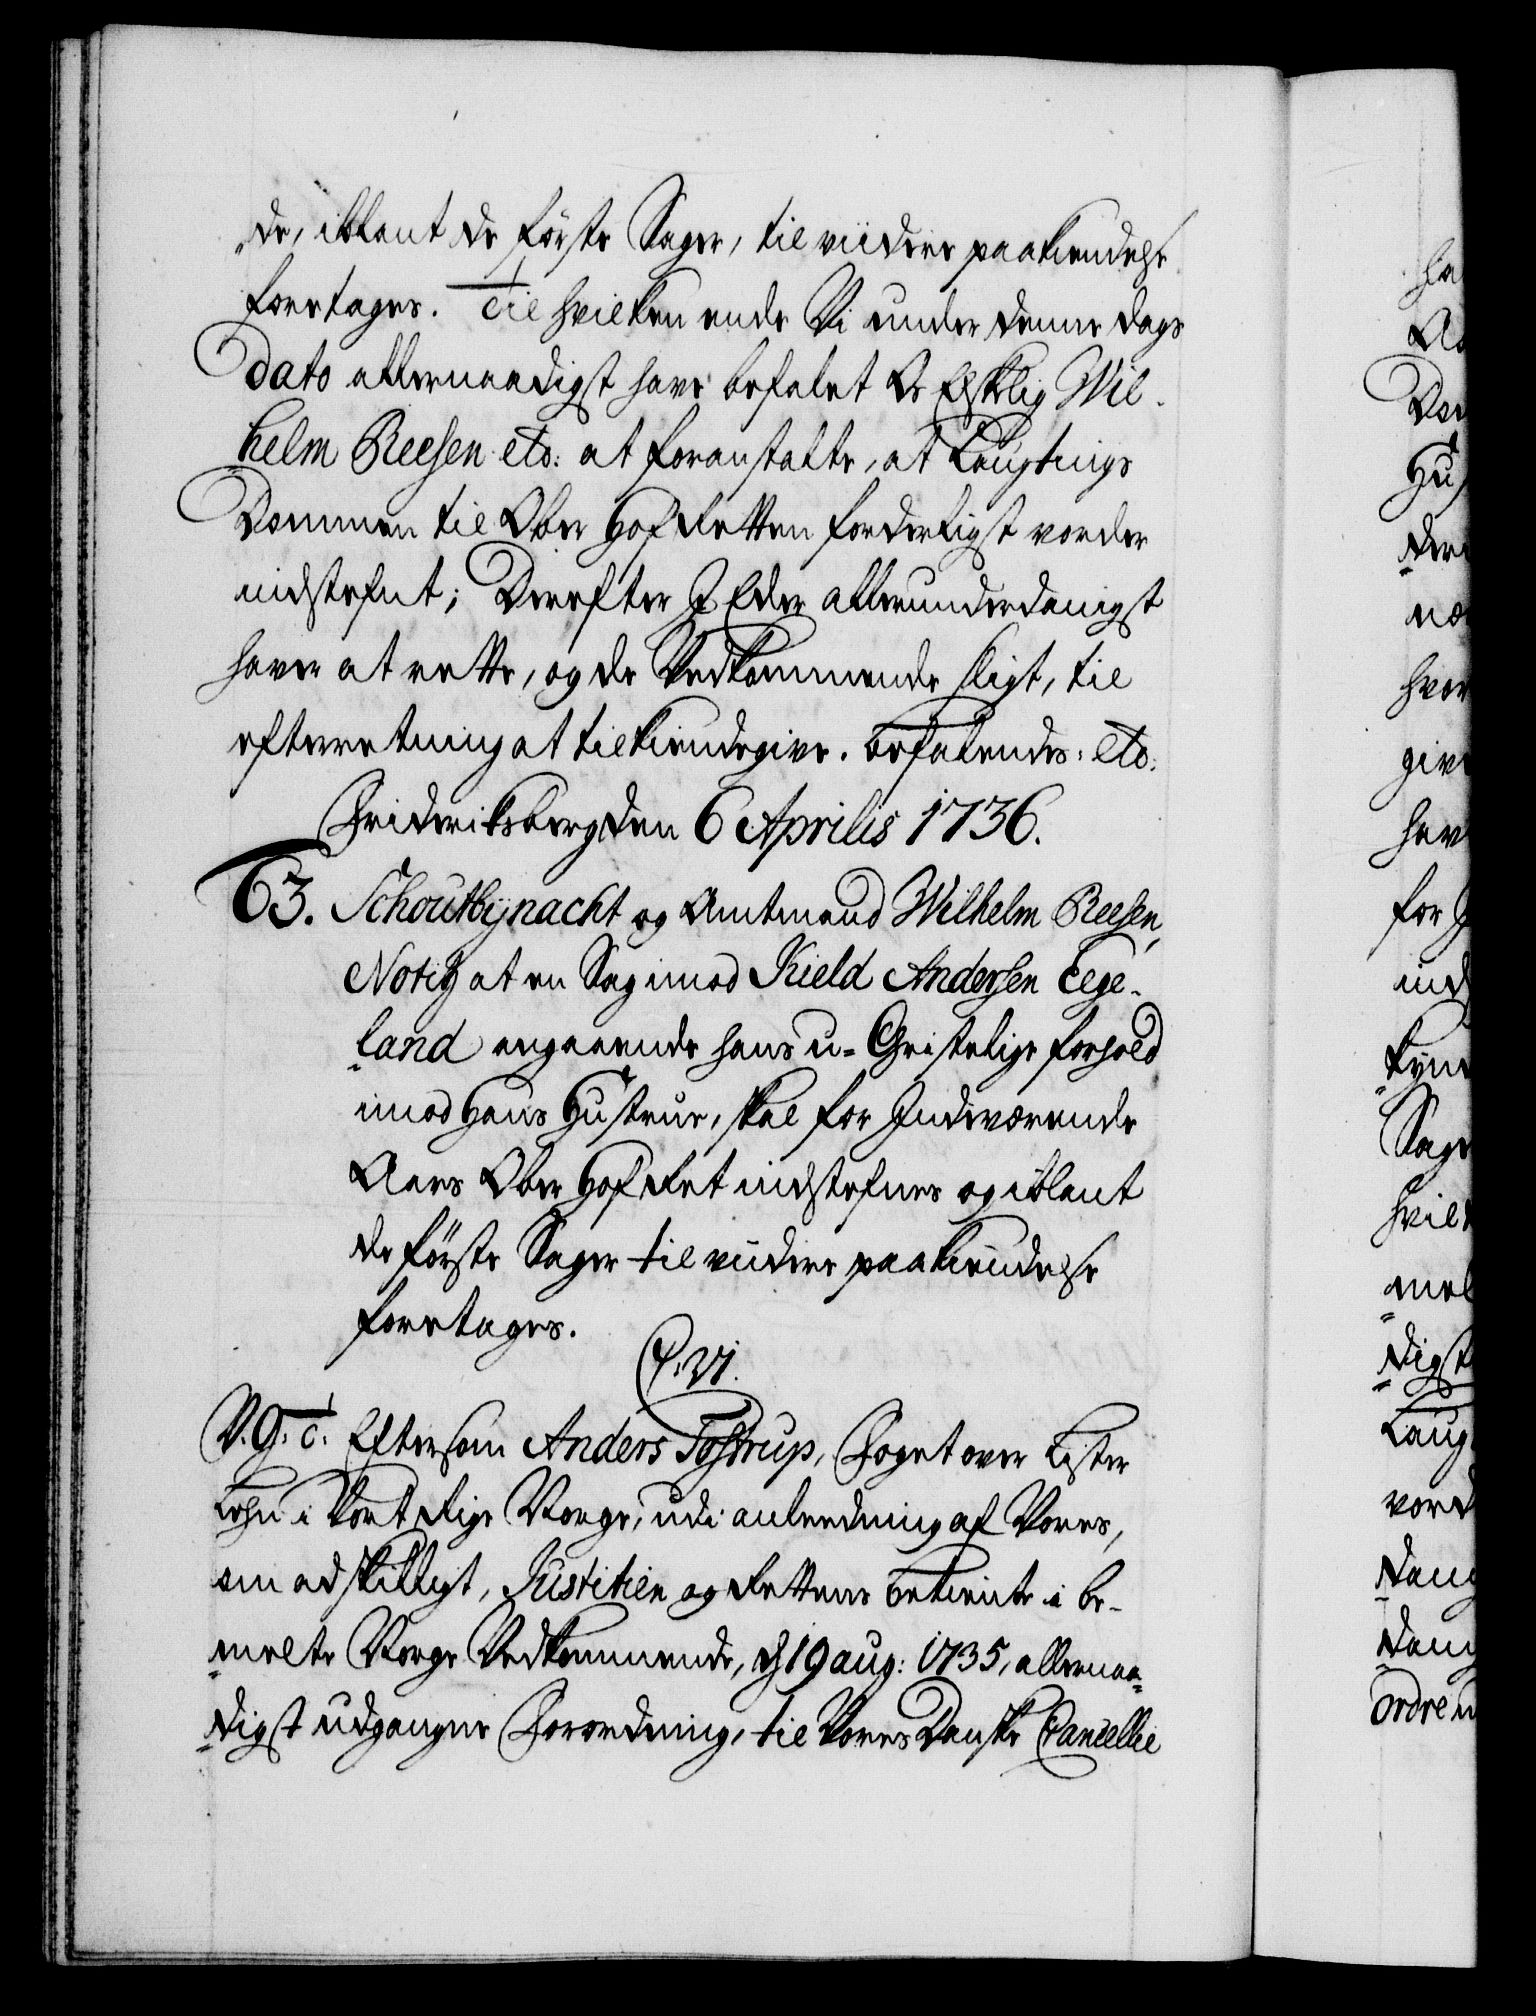 de, iblant de første Sager, til viidere paakiendelse
foretages. Til hvilken ende Vi under denne dags
Dato allernaadigst have befalet Os Elskelig Wil-
helm Reesen etc: at foranstalte, at Laugtings
Dommen til Ober Hof Retten forderligst vorder
indstefnt; Derefter I Eder allerunderdanigst
haver at rette, og de Vedkommende sligt, til
efterretning at tilkiendegive. Befalendes: etc:
Frideriksberg den 6 Aprilis 1736.
63. Schoutbÿnacht og Amtmand Wilhelm Reesen,
Notitz at en Sag imod Kield Andersen Tege-
land angaaende hans u-Christelige forhold
imod Hans Hustrue, skal for Indeværende
Aars Ober Hof Ret indstefnes og iblant
de første Sager til viidere paakiendelse
foretages.
C. VI.
V. G. T. Eftersom Anders Tostrup, Foget over Lister
Lehn i Vort Rige Norge, udi anledning af Vores,
om adskilligt, Justitien og Rettens Betiente i be-
melte Norge Vedkommende, d 19 aug: 1735, allernaa-
digst udgangne Forordning, til Vores Danske Cancellie